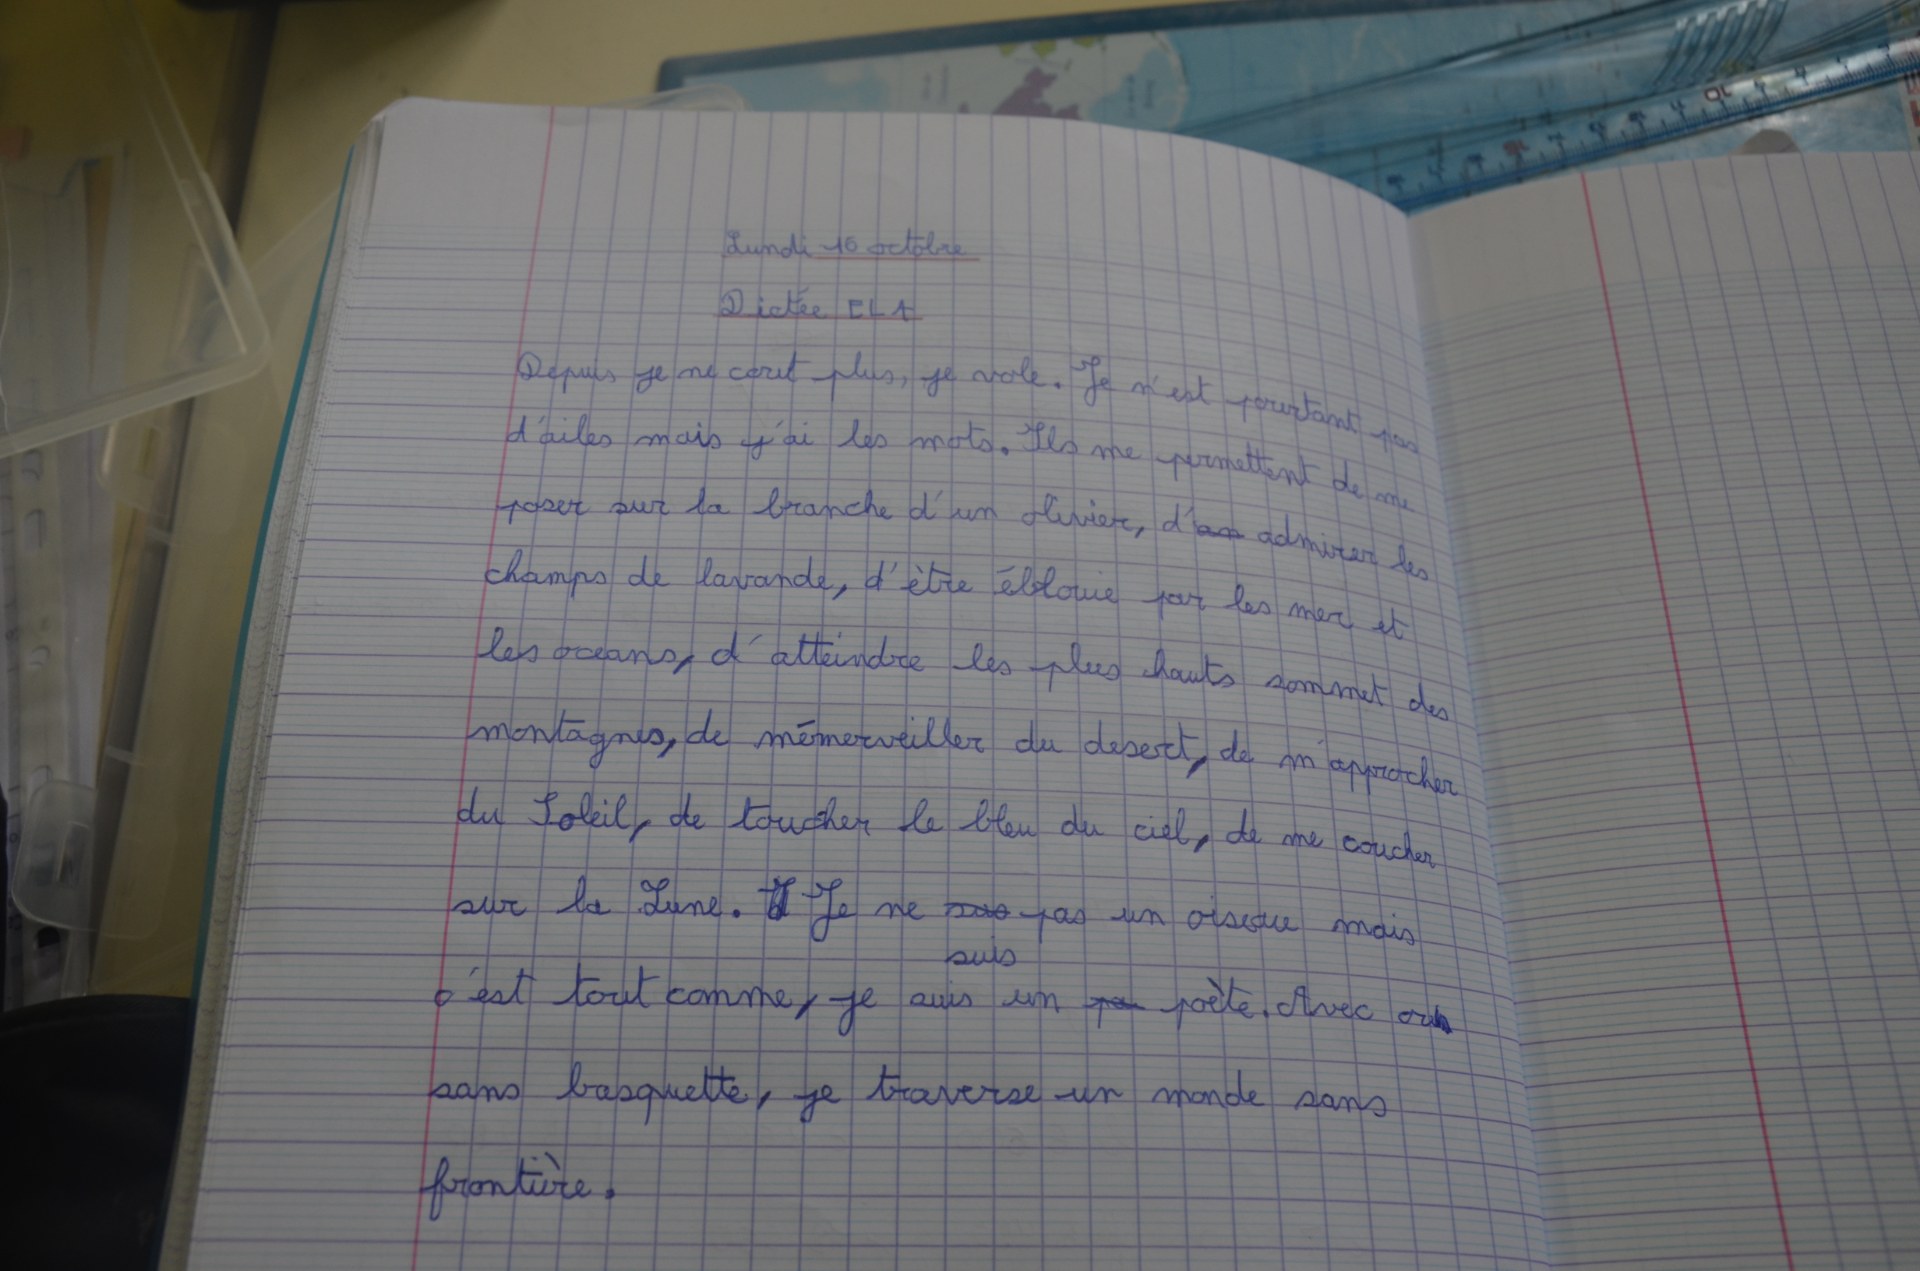 Lundi 16 octobre
Dictée ELA
Depuis je ne cout plus, je vole. Je n'est pourtant pas
d'ailes mais j'ai les mots. Ils me permettent de me
poser sur la branche d'un olivier, d' admirer les
champs de lavande, d'être éblouie par les mer et
les océans, d'atteindre les plus hauts sommet des
montagnes, de mémerveiller du desert, de m'approcher
du Soleil, de toucher le bleu du ciel, de me coucher
sur la Lune. Je ne pas un oiseau mais
suis
c'est tout comme, je suis un poète. Avec ou
sans basquette, je traverse un monde sans
frontière.